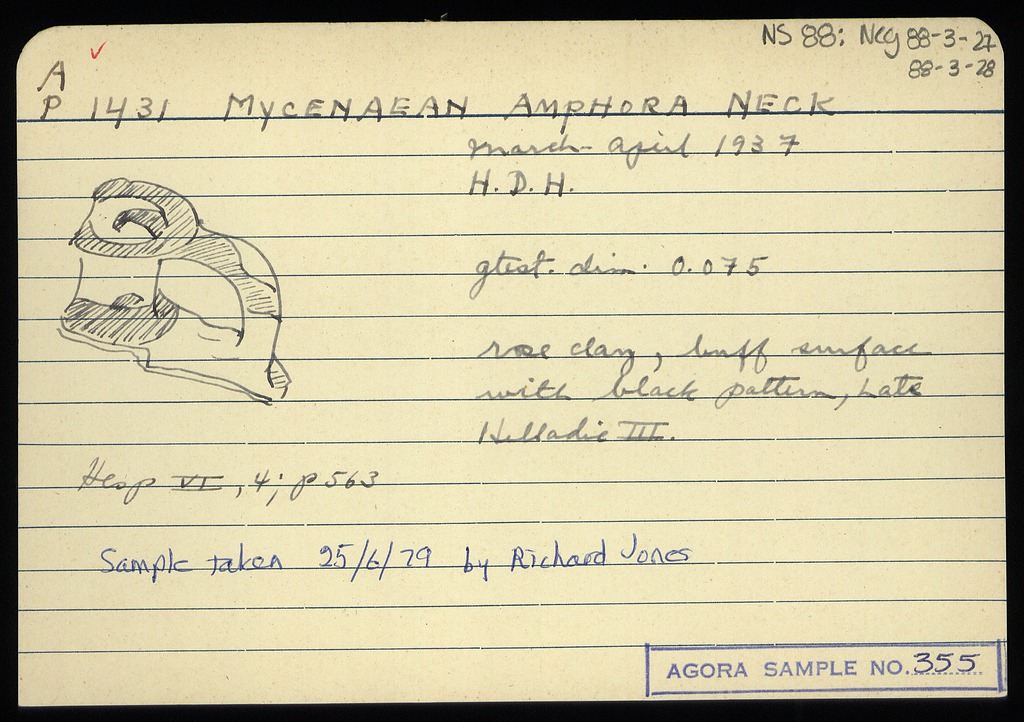 NS 88: Neg 88-3-27
88-3-28
A
P 1431 MYCENAEAN AMPHORA NECK
March-April 1937
H. D. H.
gtest. dim. 0.075
rose clay, buff surface
with black pattern, Late
Helladic III.
Hesp VI, 4; p 563
Sample taken 25/6/79 by Richard Jones
AGORA SAMPLE NO. 355